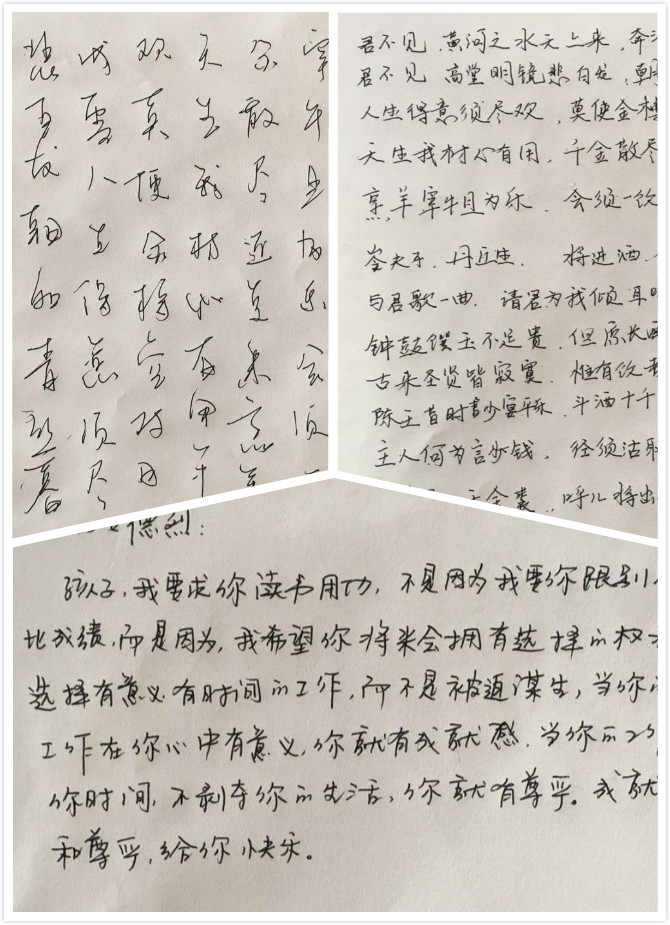 悲白发朝如青丝暮
成雪人生得意须尽
欢莫使金樽空对月
天生我材必有用千
金散尽还复来烹羊
宰牛且为乐会须一
君不见,黄河之水天上来,奔
君不见 高堂明镜悲白发,朝
人生得意须尽欢,莫使金樽
天生我材必有用,千金散尽
烹羊宰牛且为乐.会须一饮
岑夫子.丹丘生.将进酒.
与君歌一曲.请君为我倾耳
钟鼓馔玉不足贵.但愿长
古来圣贤皆寂寞.惟有饮者
陈王昔时宴平乐.斗酒十千
主人何为言少钱,径须沽取
千金裘,呼儿将出
德烈:
孩子,我要求你读书用功,不是因为我要你跟别人
比成绩,而是因为,我希望你将来会拥有选择的权
选择有意义有时间的工作,而不是被迫谋生,当你的
工作在你心中有意义,你就有成就感.当你的工作
你时间,不剥夺你的生活,你就有尊严。成就
和尊严,给你快乐。